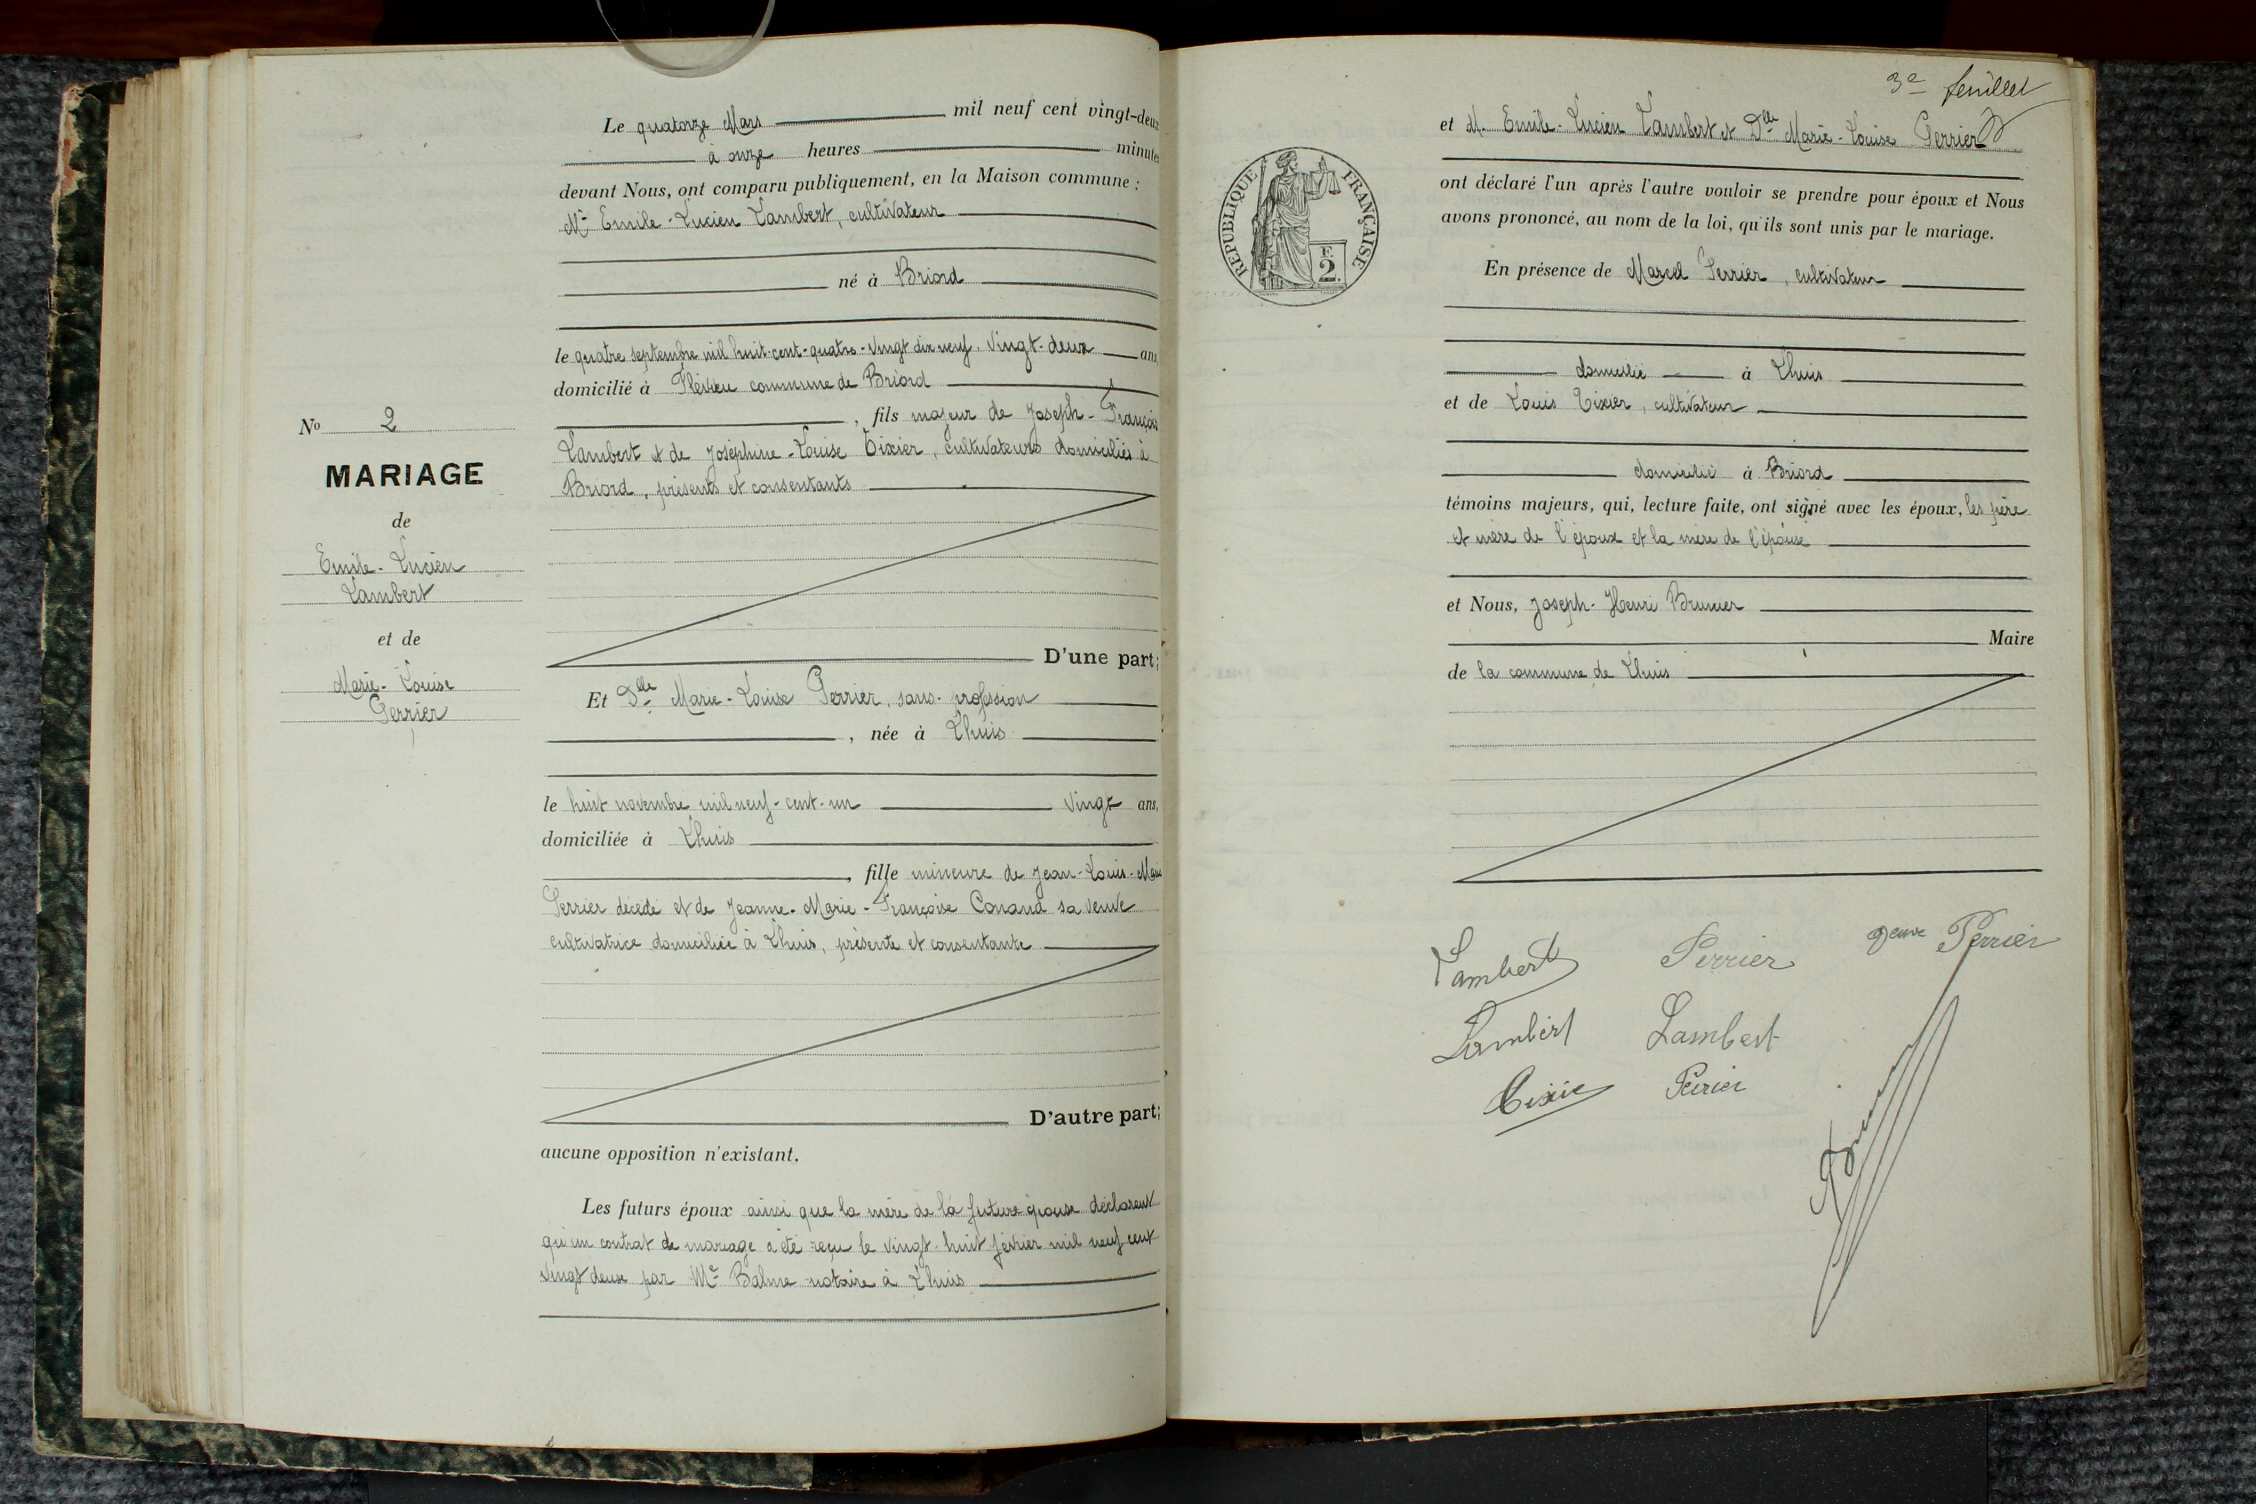 Le quatorze Mars mil neuf cent vingt-deux
à onze heures minutes
devant Nous, ont comparu publiquement, en la Maison commune :
Mr Emile-Lucien Lambert, cultivateur
né à Briord
le quatre septembre mil huit-cent-quatre-vingt dix neuf, vingt-deux ans,
domicilié à Flévieu commune de Briord
, fils majeur de Joseph-François
No 2
Lambert et de Joséphine-Louise Tixier, cultivateurs domiciliés à
Briord, présents et consentants
MARIAGE
de
Emile-Lucien
Lambert
et de
Marie-Louise
Perrier
D'une part;
Et Dlle Marie-Louise Perrier, sans profession
, née à Lhuis
le huit novembre mil neuf-cent-un vingt ans,
domiciliée à Lhuis
, fille mineure de Jean-Louis-Marie
Perrier décédé et de Jeanne-Marie-Françoise Conand sa veuve
cultivatrice domiciliée à Lhuis, présente et consentante
D'autre part;
aucune opposition n'existant.
Les futurs époux ainsi que la mère de la future épouse déclarent
qu'un contrat de mariage a été reçu le vingt-huit février mil neuf cent
vingt deux par Me Balme notaire à Lhuis
3e feuillet
et M. Emile-Lucien Lambert et Dlle Marie-Louise Perrier
ont déclaré l'un après l'autre vouloir se prendre pour époux et Nous
avons prononcé, au nom de la loi, qu'ils sont unis par le mariage.
RÉPUBLIQUE FRANÇAISE
F
2
En présence de Marcel Perrier, cultivateur
domicilié à Lhuis
et de Louis Tixier, cultivateur
domicilié à Briord
témoins majeurs, qui, lecture faite, ont signé avec les époux, les père
et mère de l'époux et la mère de l'épouse
et Nous, Joseph-Henri Brunier
Maire
de la commune de Lhuis
Lambert Perrier Veuve Perrier
Lambert Lambert
Tixie Perrier